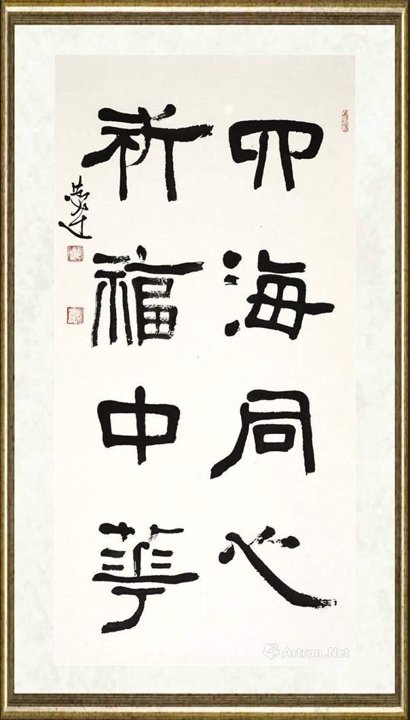 四海同心
祈福中華
Artron.Net